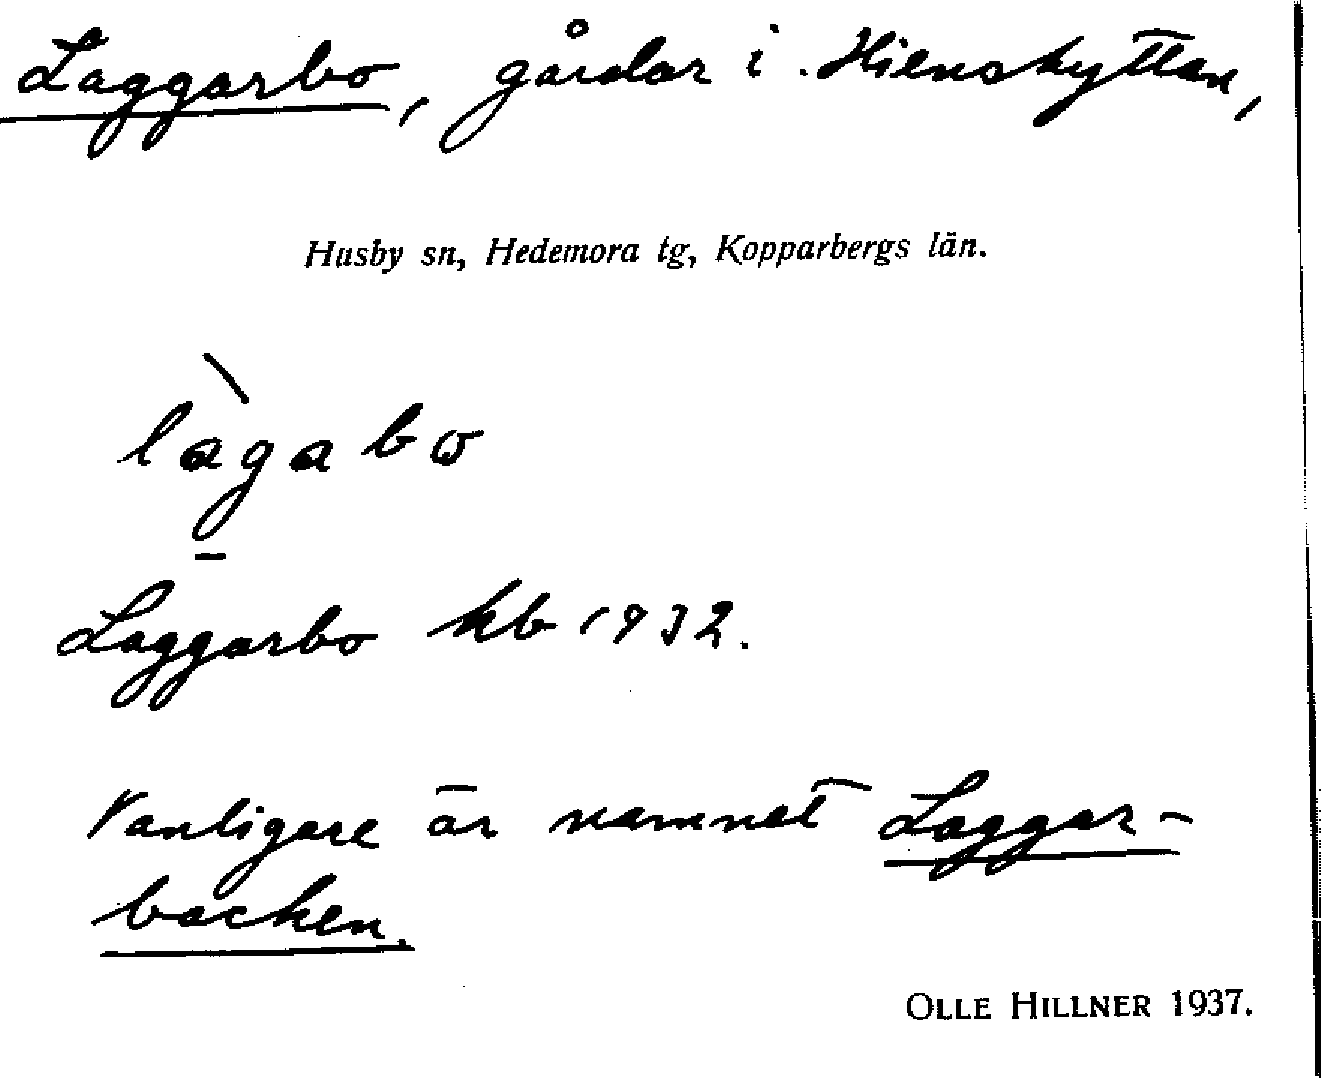 Laggarbo, gårdar i Hienshyttan,
Husby sn, Hedemora tg, Kopparbergs län.
làgabo
Laggarbo kb 1932.
Vanligare är namnet Laggar-
backen.
OLLE HILLNER 1937.